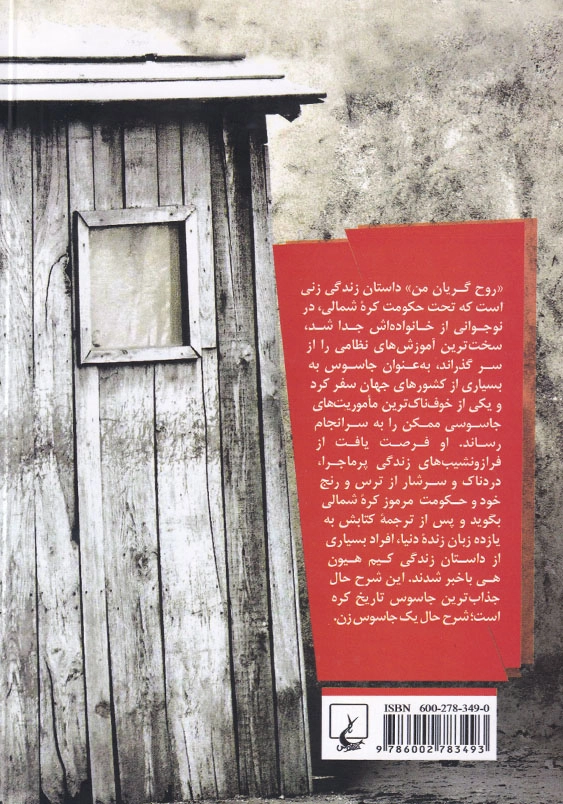 «روح گریان من» داستان زندگی زنی
است که تحت حکومت کرهٔ شمالی، در
نوجوانی از خانواده‌اش جدا شد،
سخت‌ترین آموزش‌های نظامی را از
سر گذراند، به‌عنوان جاسوس به
بسیاری از کشورهای جهان سفر کرد
و یکی از خوف‌ناک‌ترین مأموریت‌های
جاسوسی ممکن را به سرانجام
رساند. او فرصت یافت از
فرازونشیب‌های زندگی پرماجرا،
دردناک و سرشار از ترس و رنج
خود و حکومت مرموز کرهٔ شمالی
بگوید و پس از ترجمهٔ کتابش به
یازده زبان زندهٔ دنیا، افراد بسیاری
از داستان زندگی کیم هیون
هی باخبر شدند. این شرح حال
جذاب‌ترین جاسوس تاریخ کره
است؛ شرح حال یک جاسوس زن.
ISBN 600-278-349-0
9 786002 783493
ققنوس